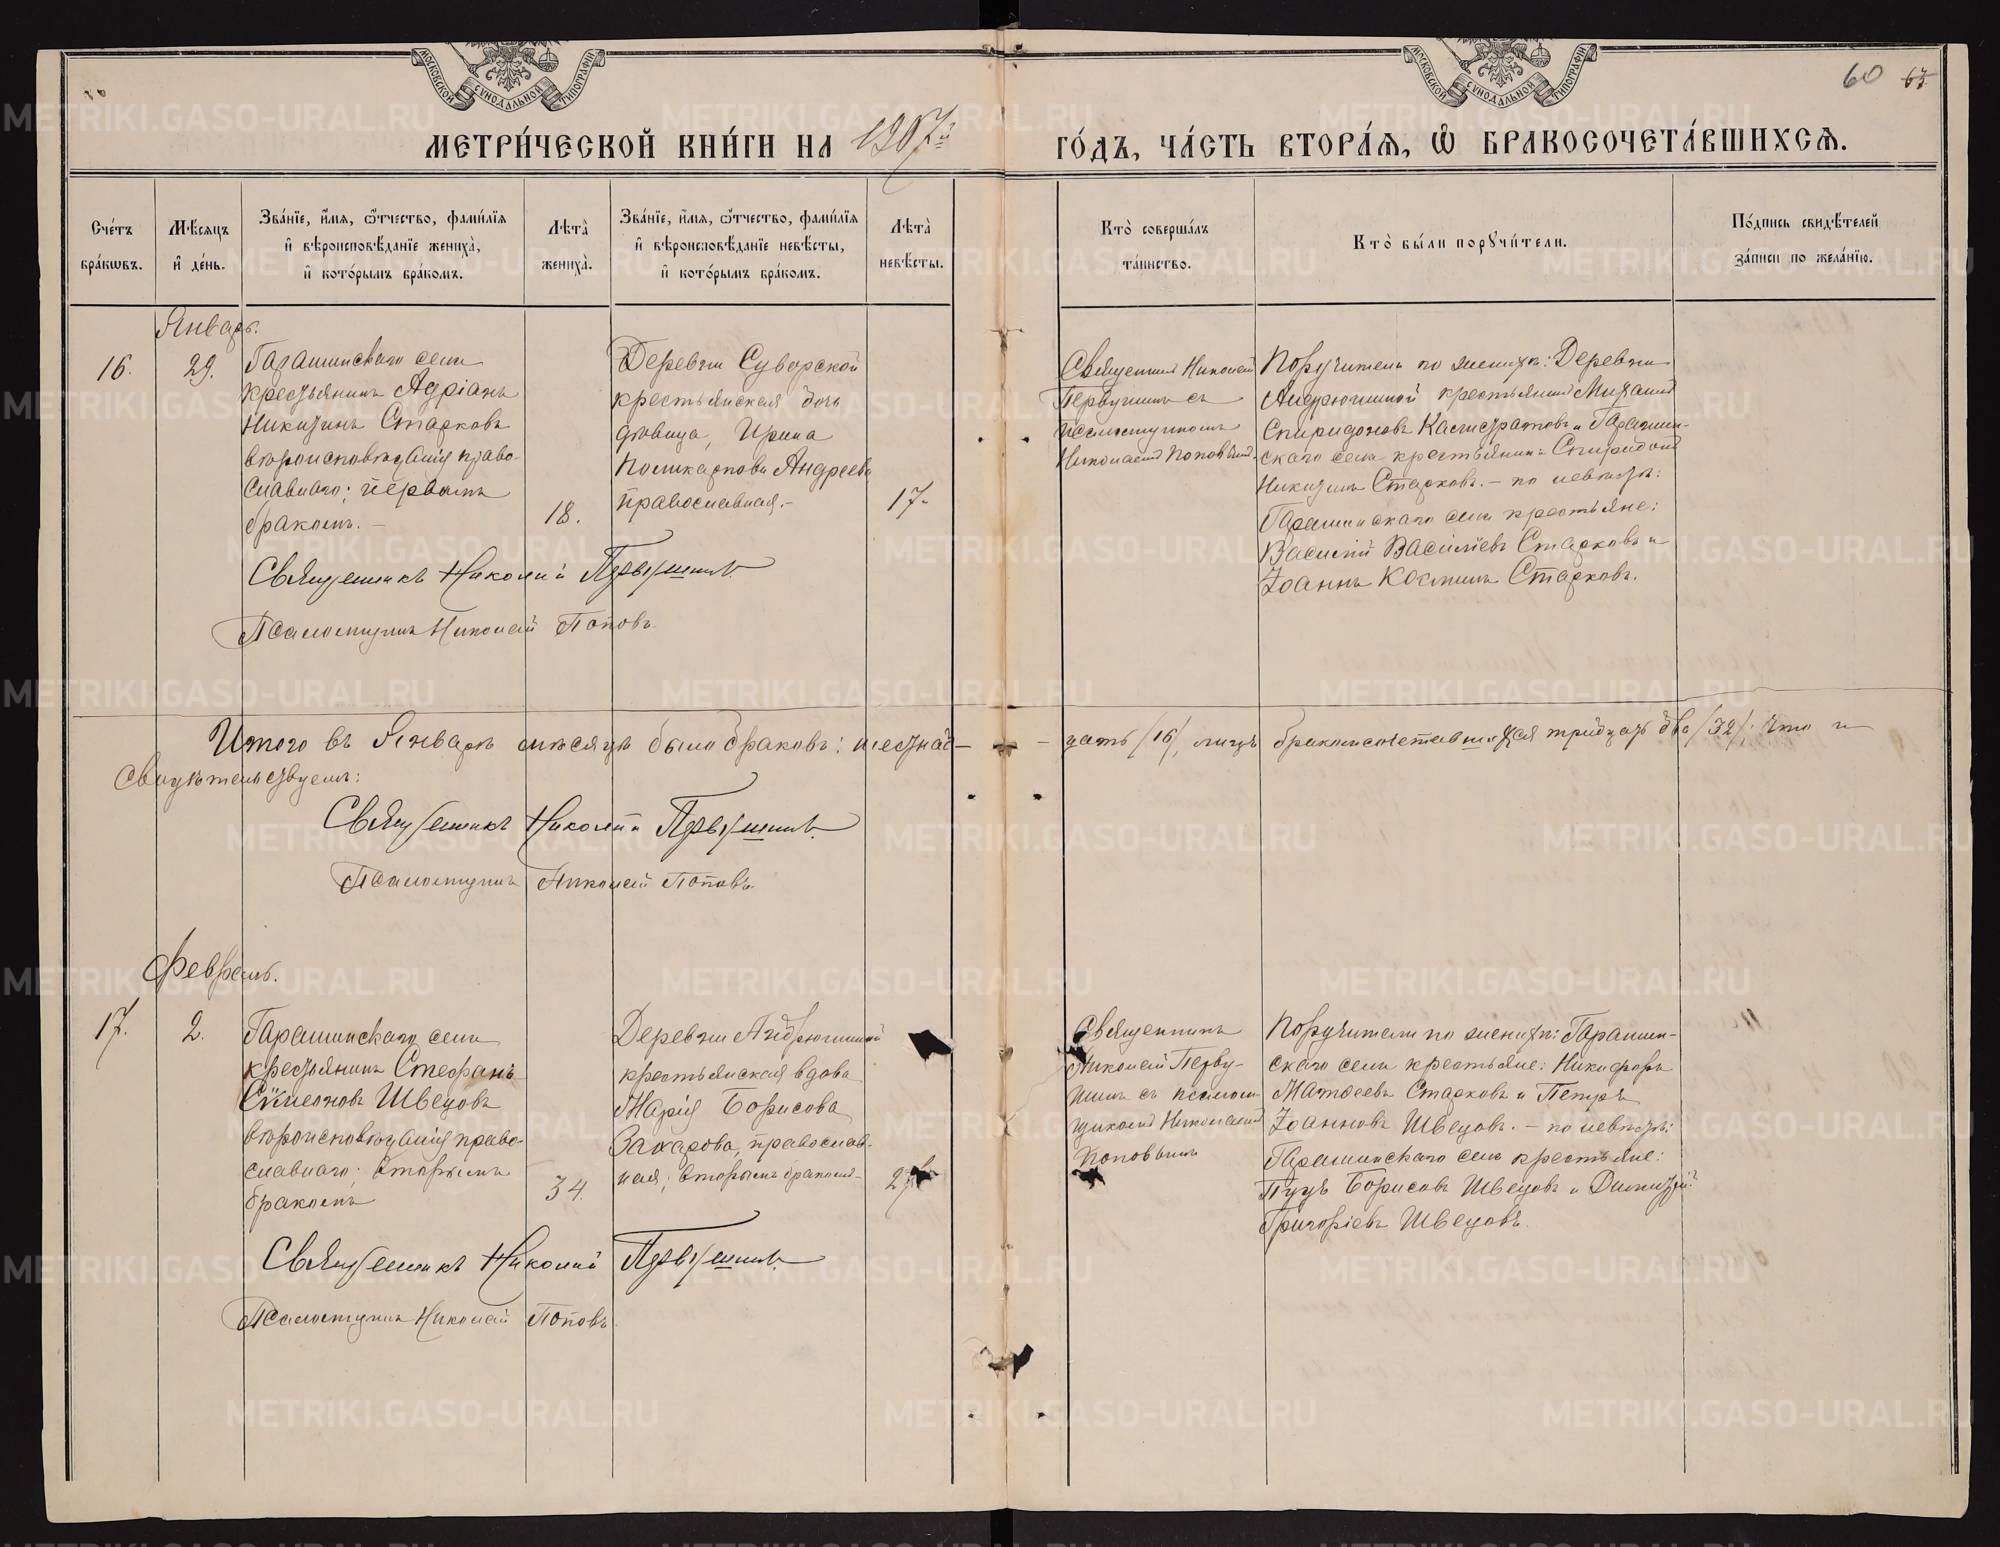 МОСКОВСКОЙ СУНОДАЛЬНОЙ ТИПОГРАФІИ
МОСКОВСКОЙ СУНОДАЛЬНОЙ ТИПОГРАФІИ
60
МЕТРИ́ЧЕСКОЙ КНИ́ГИ НА 1907й
ГО́ДЪ, ЧА́СТЬ ВТОРА́Ѧ, Ѽ БРАКОСОЧЕТА́ВШИХСѦ.
Сче́тъ бра́кѡвъ.
Мѣ́сѧцъ и҆ де́нь.
Зва́нїе, и҆́мѧ, ѻ҆́тчество, фами́лїѧ и҆ вѣроисповѣ́данїе жениха̀, и҆ кото́рымъ бра́комъ.
Лѣта̀ жениха̀.
Зва́нїе, и҆́мѧ, ѻ҆́тчество, фами́лїѧ и҆ вѣроисповѣ́данїе невѣ́сты, и҆ кото́рымъ бра́комъ.
Лѣта̀ невѣ́сты.
Кто̀ соверша́лъ та́инство.
Кто̀ бы́ли порꙋчи́тели.
По́дпись свидѣ́телей за́писи по жела́нїю.
Январь.
16.
29.
Гарашинскаго села
крестьянинъ Адріанъ
Никитинъ Старковъ
вѣроисповѣданія право-
славнаго; первымъ
бракомъ. –
18.
Деревни Суворской
крестьянская дочь
дѣвица, Ирина
Поликарпова Андреева
православная. –
17
Священникъ Николай
Первушинъ съ
псаломщикомъ
Николаемъ Поповымъ.
Поручители по женихѣ: Деревни
Андрюшиной крестьянинъ Михаилъ
Спиридоновъ Калистратовъ и Гарашин-
скаго села крестьянинъ Спиридонъ
Никитинъ Старковъ. – по невѣстѣ:
Гарашинскаго села крестьяне:
Василій Васильевъ Старковъ и
Іоаннъ Косминъ Старковъ.
Священникъ Николай Первушинъ.
Псаломщикъ Николай Поповъ.
Итого въ Январѣ мѣсяцѣ было браковъ: шестнад-
цать /16/, лицъ бракосочетавшихся тридцать два /32/; что и
свидѣтельствуемъ:
Священникъ Николай Первушинъ.
Псаломщикъ Николай Поповъ.
Февраль.
17.
2.
Гарашинскаго села
крестьянинъ Стефанъ
Симеоновъ Швецовъ
вѣроисповѣданія право-
славнаго; вторымъ
бракомъ
34.
Деревни Андрюшиной
крестьянская вдова
Марія Борисова
Захарова, православ-
ная; вторымъ бракомъ –
Священникъ
Николай Перву-
шинъ съ псалом-
щикомъ Николаемъ
Поповымъ
Поручители по женихѣ: Гарашин-
скаго села крестьяне: Никифоръ
Матѳеевъ Старковъ и Петръ
Іоанновъ Швецовъ. – по невѣстѣ:
Гарашинскаго села крестьяне:
Борисовъ Швецовъ и Димитрій
Григорьевъ Швецовъ.
Священникъ Николай Первушинъ.
Псаломщикъ Николай Поповъ
METRIKI.GASO-URAL.RU